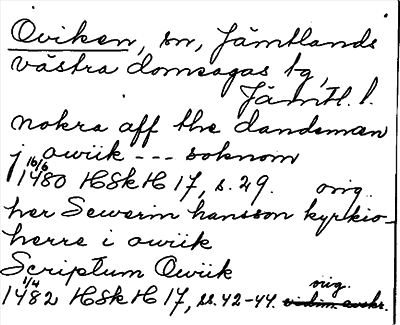 Oviken, sn, Jämtlands
västra domsagas tg,
Jämtl. l.
nokra aff the dandemæn
j owiik --- soknom
16/6
1480 HSkH 17, s. 29. orig.
her Sewerin hansson kyrkio-
herre i owiik
Scriptum Owiik
1/4 orig.
1482 HSkH 17, ss. 42-44. vidim. avskr.